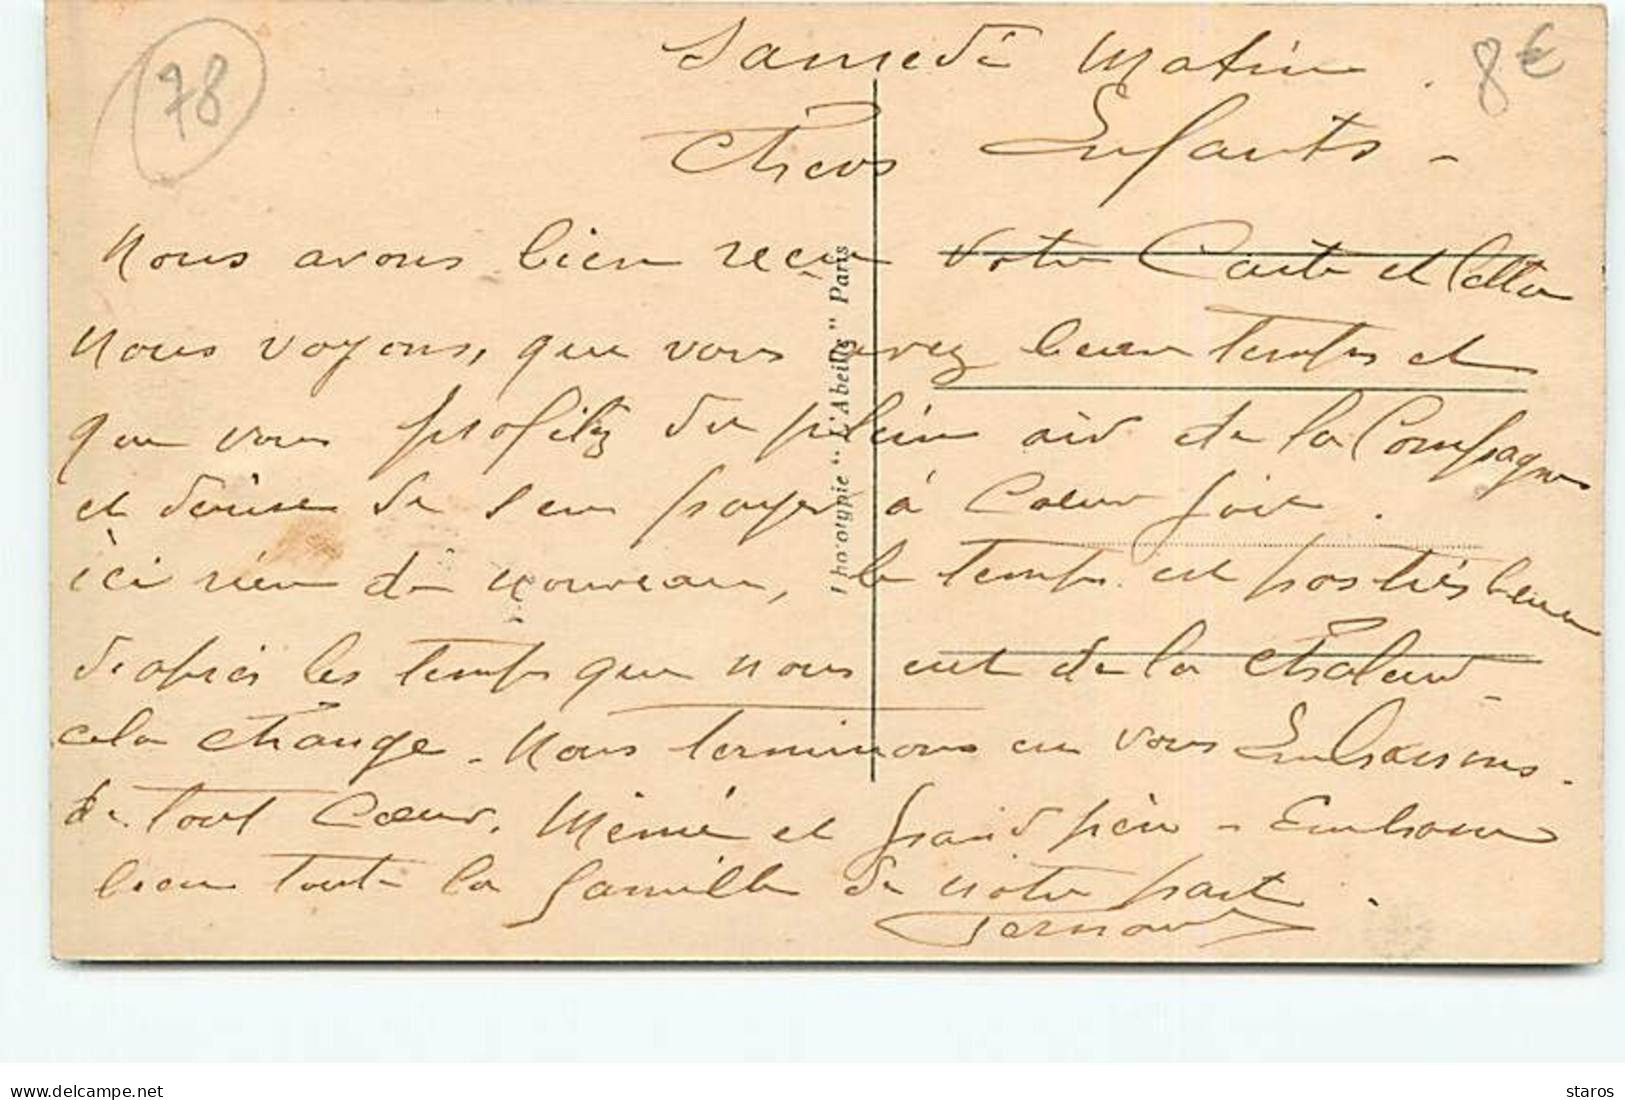 78
8€
Samedi Matin
Chers Enfants -
Nous avons bien reçu votre Carte et lettre
nous voyons, que vous avez beau temps et
que vous profitez du plein air de la Compagne
et de de s'en payer à Cœur joie.
ici rien de nouveau, le temps est pas très beau
d'après les temps que nous eut de la Chaleur -
cela Change. Nous terminons en vous Embrassons.
de tout Cœur. Mémé et grand père - Embrasse
bien toute la famille de notre part.
Phototypie "L'Abeille" Paris
www.delcampe.net
staros